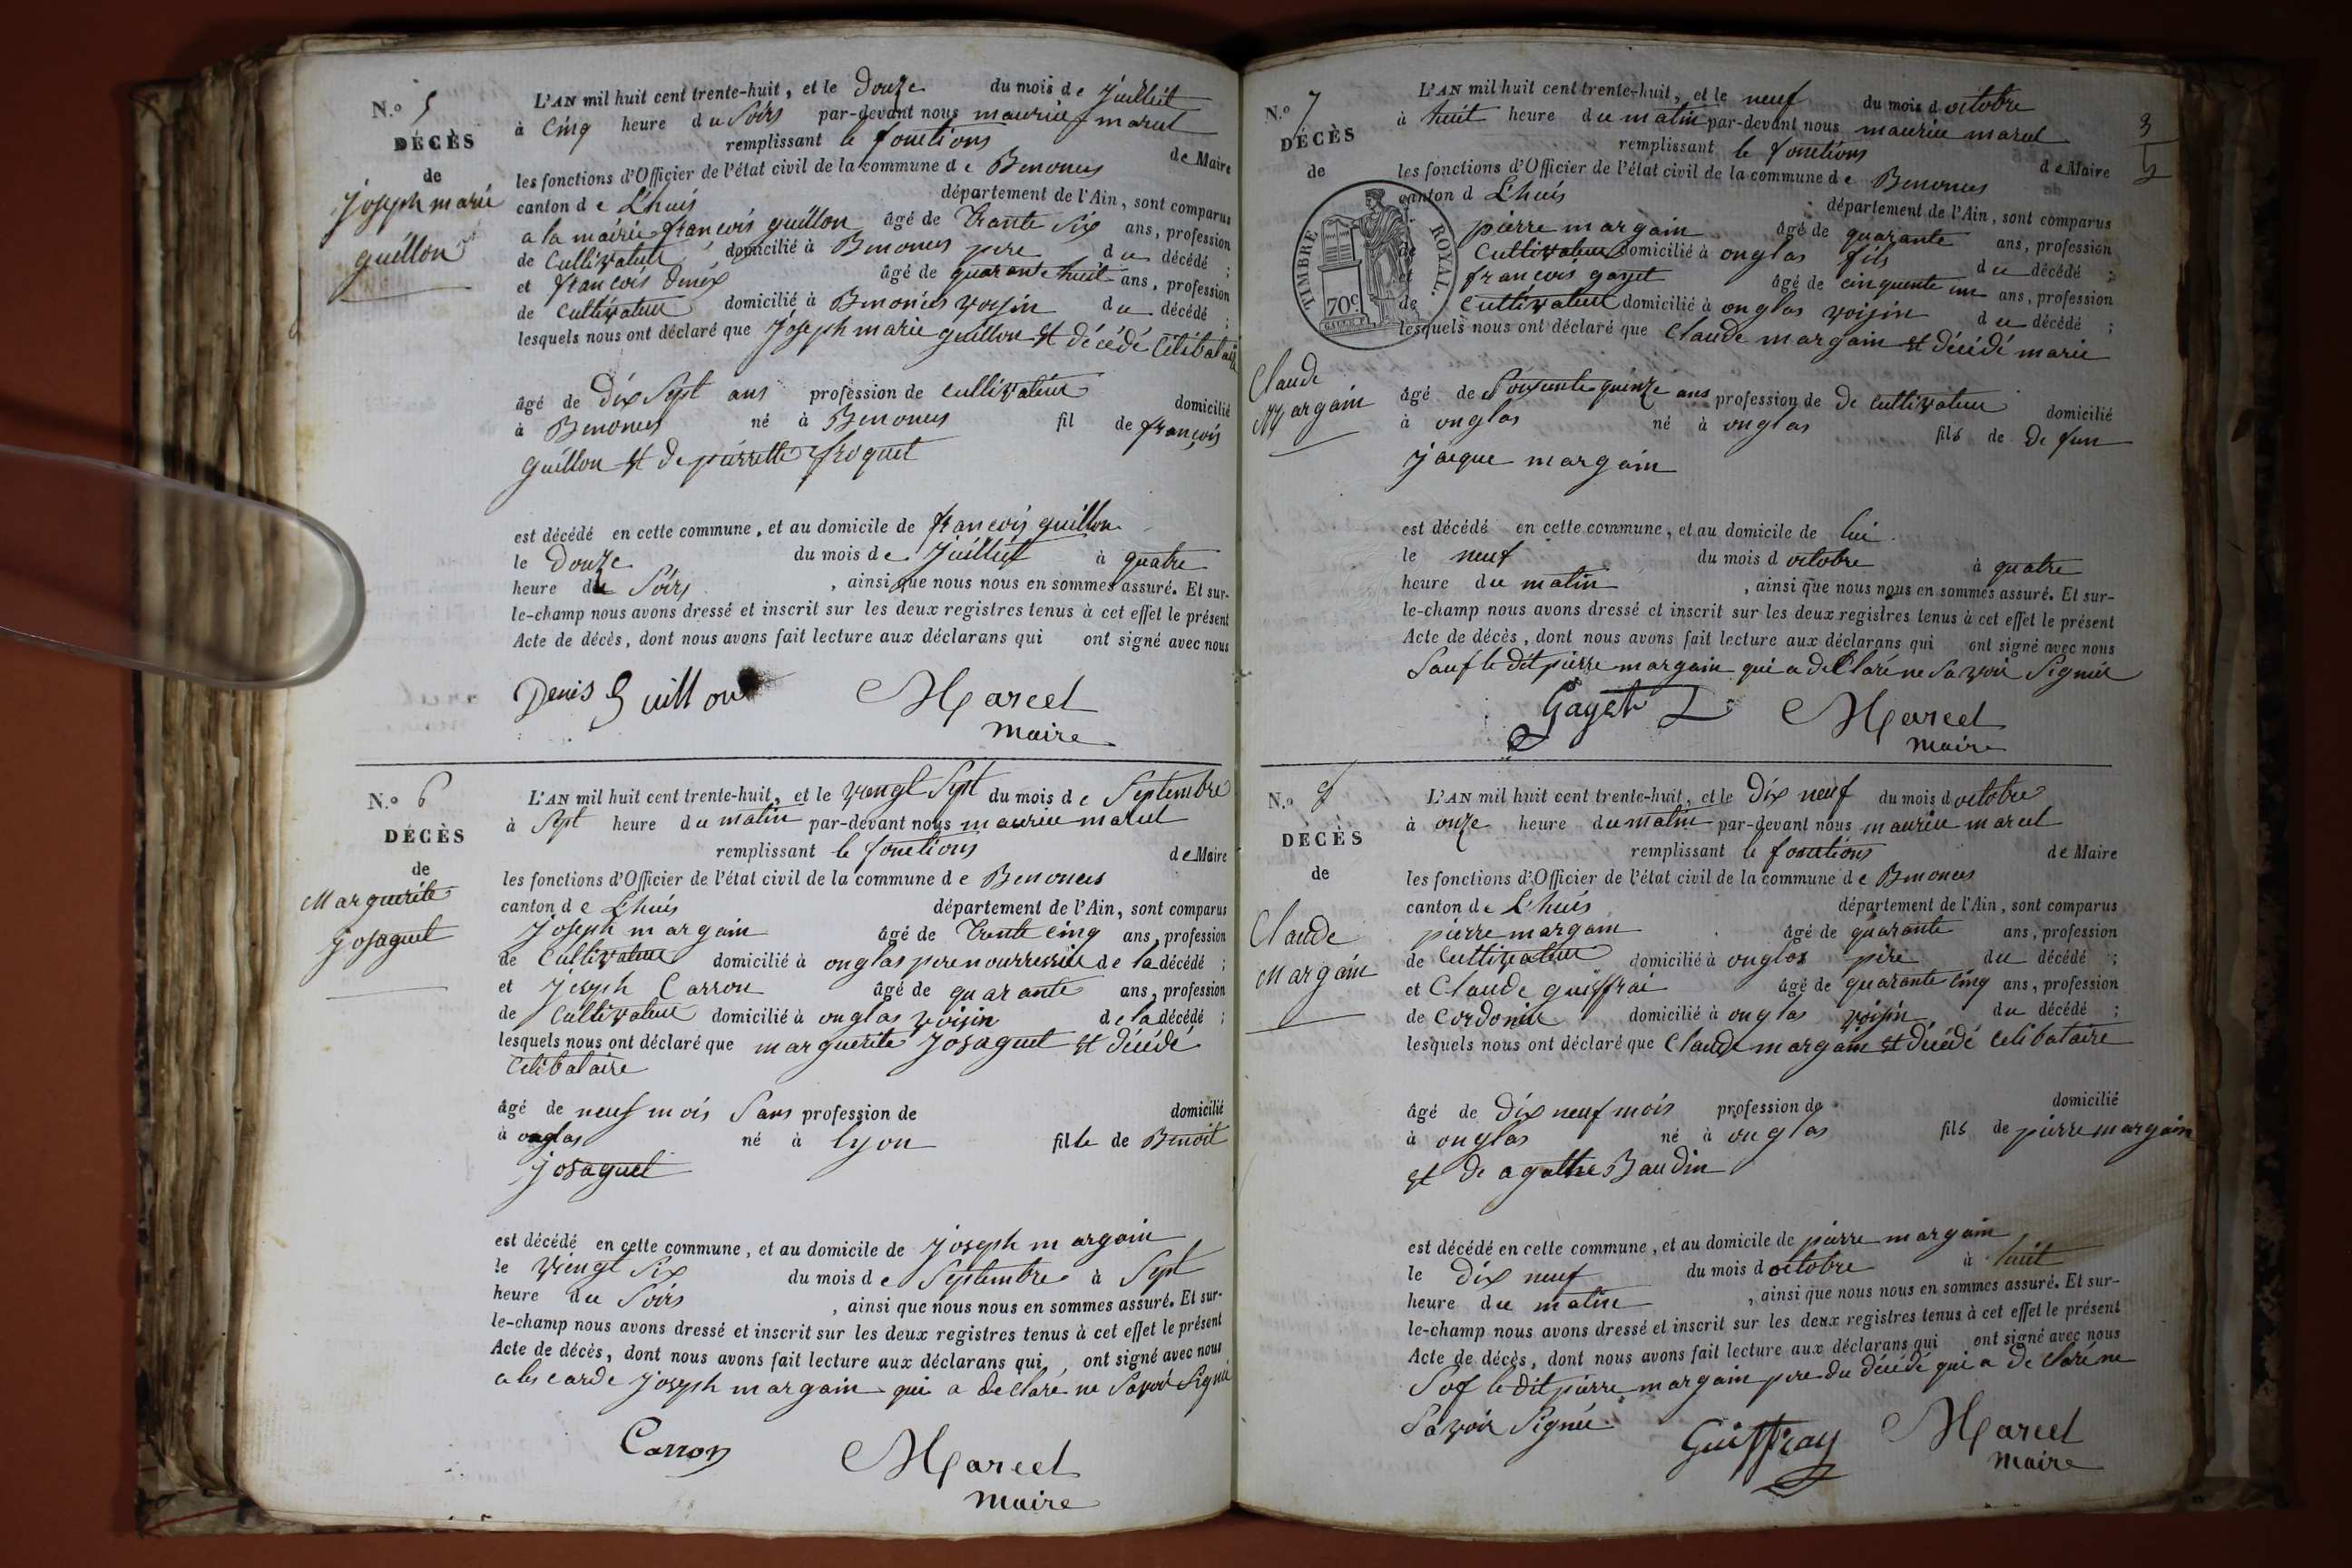 N.o 5
DÉCÈS
de
joseph marie
guillon
L'AN mil huit cent trente-huit, et le Douze du mois de Juilliet
à Cinq heure du Soirs par-devant nous maurice marcel
remplissant le fonctions de Maire
les fonctions d'Officier de l'état civil de la commune de Benonces
canton de L'huis département de l'Ain, sont comparus
a la mairie françois guillon âgé de Trante Six ans, profession
de Cultivateur domicilié à Benonces pere du décédé ;
et françois Denis âgé de quarante huit ans, profession
de Cultivateur domicilié à Benonces voisin du décédé ;
lesquels nous ont déclaré que Joseph marie guillon et décédé Célibataire
âgé de Dix Sept ans profession de cultivateur domicilié
à Benonces né à Benonces fil de françois
guillon et de pierrette froquet
est décédé en cette commune, et au domicile de françois guillon
le Douze du mois de Juilliet à quatre
heure du Soirs , ainsi que nous nous en sommes assuré. Et sur-
le-champ nous avons dressé et inscrit sur les deux registres tenus à cet effet le présent
Acte de décès, dont nous avons fait lecture aux déclarans qui ont signé avec nous
Denis Guillon Marcel
maire
N.o 6
DÉCÈS
de
Marguerite
josaguet
L'AN mil huit cent trente-huit, et le vengt Sept du mois de Septembre
à Sept heure du matin par-devant nous maurice marcel
remplissant le fonctions de Maire
les fonctions d'Officier de l'état civil de la commune de Benonces
canton de L'huis département de l'Ain, sont comparus
Joseph margain âgé de Trente Cinq ans, profession
de Cultivateur domicilié à onglas pere nourressiée de la décédé ;
et Joseph Carron âgé de quarante ans, profession
de Cultivateur domicilié à onglas voisin de la décédé ;
lesquels nous ont déclaré que marguerite josaguet et décédé
Celibataire
âgé de neuf mois Sans profession de domicilié
à onglas né à lyon fille de Benoit
josaguet
est décédé en cette commune, et au domicile de joseph margain
le vengt Six du mois de Septembre à Sept
heure du Soirs , ainsi que nous nous en sommes assuré. Et sur-
le-champ nous avons dressé et inscrit sur les deux registres tenus à cet effet le présent
Acte de décès, dont nous avons fait lecture aux déclarans qui ont signé avec nous
joseph margain qui a declaré ne Savoir Signié
Carron Marcel
maire
3
N.o 7
DÉCÈS
de
Claude
Margain
TIMBRE ROYAL.
70c
L'AN mil huit cent trente-huit, et le neuf du mois d octobre
à huit heure du matin par-devant nous maurice marcel
remplissant le fonctions de Maire
les fonctions d'Officier de l'état civil de la commune de Benonces
canton d L'huis département de l'Ain, sont comparus
pierre margain âgé de quarante ans, profession
de Cultivateur domicilié à onglas fils du décédé ;
et françois gayet âgé de cinquente un ans, profession
de Cultivateur domicilié à onglas voisin du décédé ;
lesquels nous ont déclaré que Claude margain et décédé marié
âgé de Soixente quinze ans profession de De cultivateur domicilié
à onglas né à onglas fils de De fun
jacque margain
est décédé en cette commune, et au domicile de lui
le neuf du mois d octobre à quatre
heure du matin , ainsi que nous nous en sommes assuré. Et sur-
le-champ nous avons dressé et inscrit sur les deux registres tenus à cet effet le présent
Acte de décès, dont nous avons fait lecture aux déclarans qui ont signé avec nous
Sauf le dit pierre margain qui a declaré ne Savoir Signiér
Gayet Marcel
maire
N.o 8
DÉCÈS
de
Claude
Margain
L'AN mil huit cent trente-huit, et le Dix neuf du mois d octobre
à onze heure du matin par-devant nous maurice marcel
remplissant le fonctions de Maire
les fonctions d'Officier de l'état civil de la commune de Benonces
canton de L'huis département de l'Ain, sont comparus
pierre margain âgé de quarante ans, profession
de Cultivateur domicilié à onglas pere du décédé ;
et Claude guiffrai âgé de quarante cinq ans, profession
de Cordonier domicilié à onglas voisin du décédé ;
lesquels nous ont déclaré que Claude margain et décédé celibataire
âgé de Dix neuf mois profession de domicilié
à onglas né à onglas fils de pierre margain
et de agathe Baudin
est décédé en cette commune, et au domicile de pierre margain
le Dix neuf du mois d octobre à huit
heure du matin , ainsi que nous nous en sommes assuré. Et sur-
le-champ nous avons dressé et inscrit sur les deux registres tenus à cet effet le présent
Acte de décès, dont nous avons fait lecture aux déclarans qui ont signé avec nous
Sof le dit pierre margain pere du décédé qui a declaré ne
Savoir Signée
Guiffray Marcel
maire